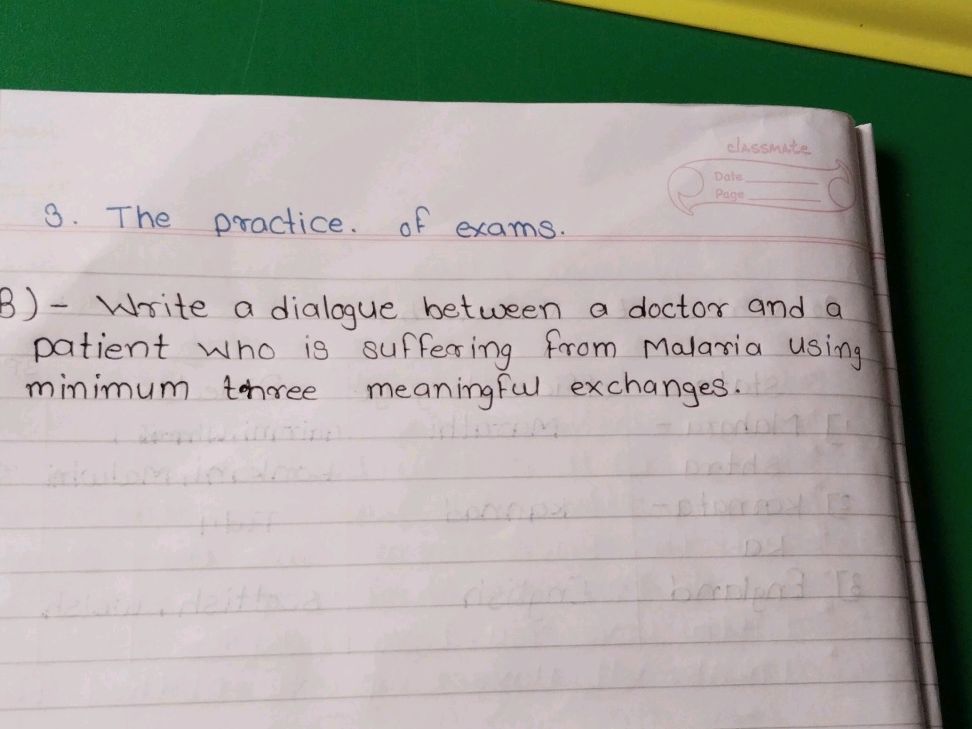 classmate
Date
Page
3. The practice. of exams.
B) - Write a dialogue between a doctor and a
patient who is suffering from Malaria using
minimum three meaningful exchanges.